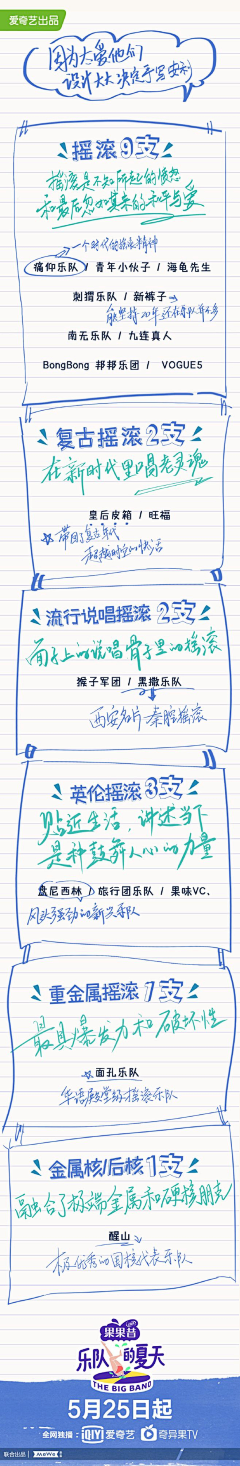 爱奇艺出品
因为太爱他们
设计大大决定手写安利
摇滚9支
摇滚是不知所起的愤怒
和最后忽如其来的和平与爱
一个时代的摇滚精神
痛仰乐队 / 青年小伙子 / 海龟先生
刺猬乐队 / 新裤子
南无乐队 / 九连真人
BongBong 邦邦乐团 / VOGUE5
复古摇滚2支
在新时代里唱老灵魂
皇后皮箱 / 旺福
流行说唱摇滚2支
面子上的说唱骨子里的摇滚
猴子军团 / 黑撒乐队
西安名片 秦腔摇滚
英伦摇滚3支
贴近生活，讲述当下
是种鼓舞人心的力量
盘尼西林 / 旅行团乐队 / 果味VC、
风头强劲的新兴乐队
重金属摇滚1支
最具爆发力和破坏性
面孔乐队
华语殿堂级摇滚乐队
金属核/后核1支
融合了极端金属和硬核朋克
醒山
极优秀的国核代表乐队
果果昔
乐队的夏天
THE BIG BAND
5月25日起
全网独播：iQIYI 爱奇艺 奇异果TV
联合出品